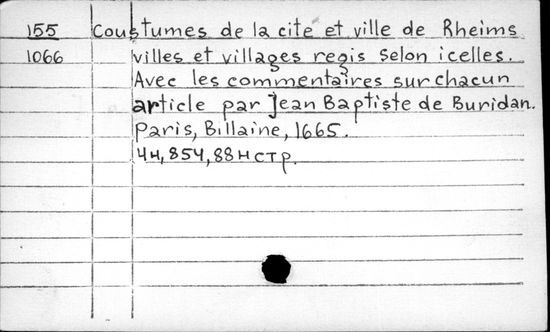 155 Coustumes de la cite et ville de Rheims
1066 villes et villages regis selon icelles.
Avec les commentaires sur chacun
article par Jean Baptiste de Buridan.
Paris, Billaine, 1665.
4н, 854, 88н стр.